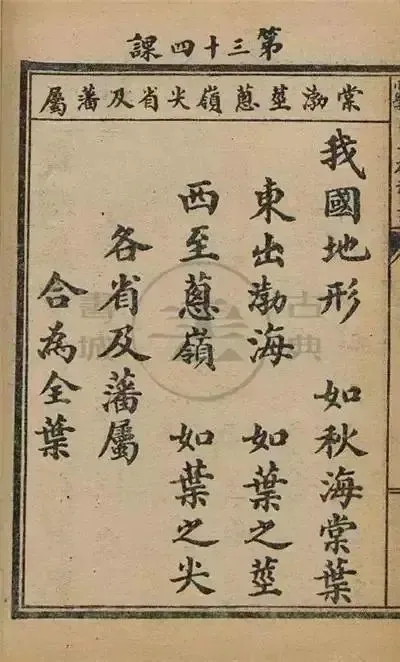 第三十四課
棠渤莖蔥嶺尖省及藩屬
我國地形　如秋海棠葉
東出渤海　如葉之莖
西至蔥嶺　如葉之尖
各省及藩屬
合為全葉
古典書城